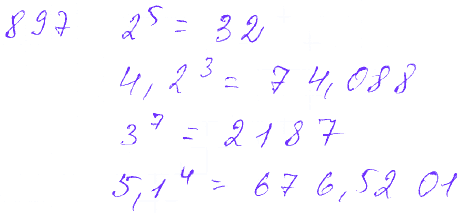 897 2⁵ = 32
4,2³ = 74,088
3⁷ = 2187
5,1⁴ = 676,5201